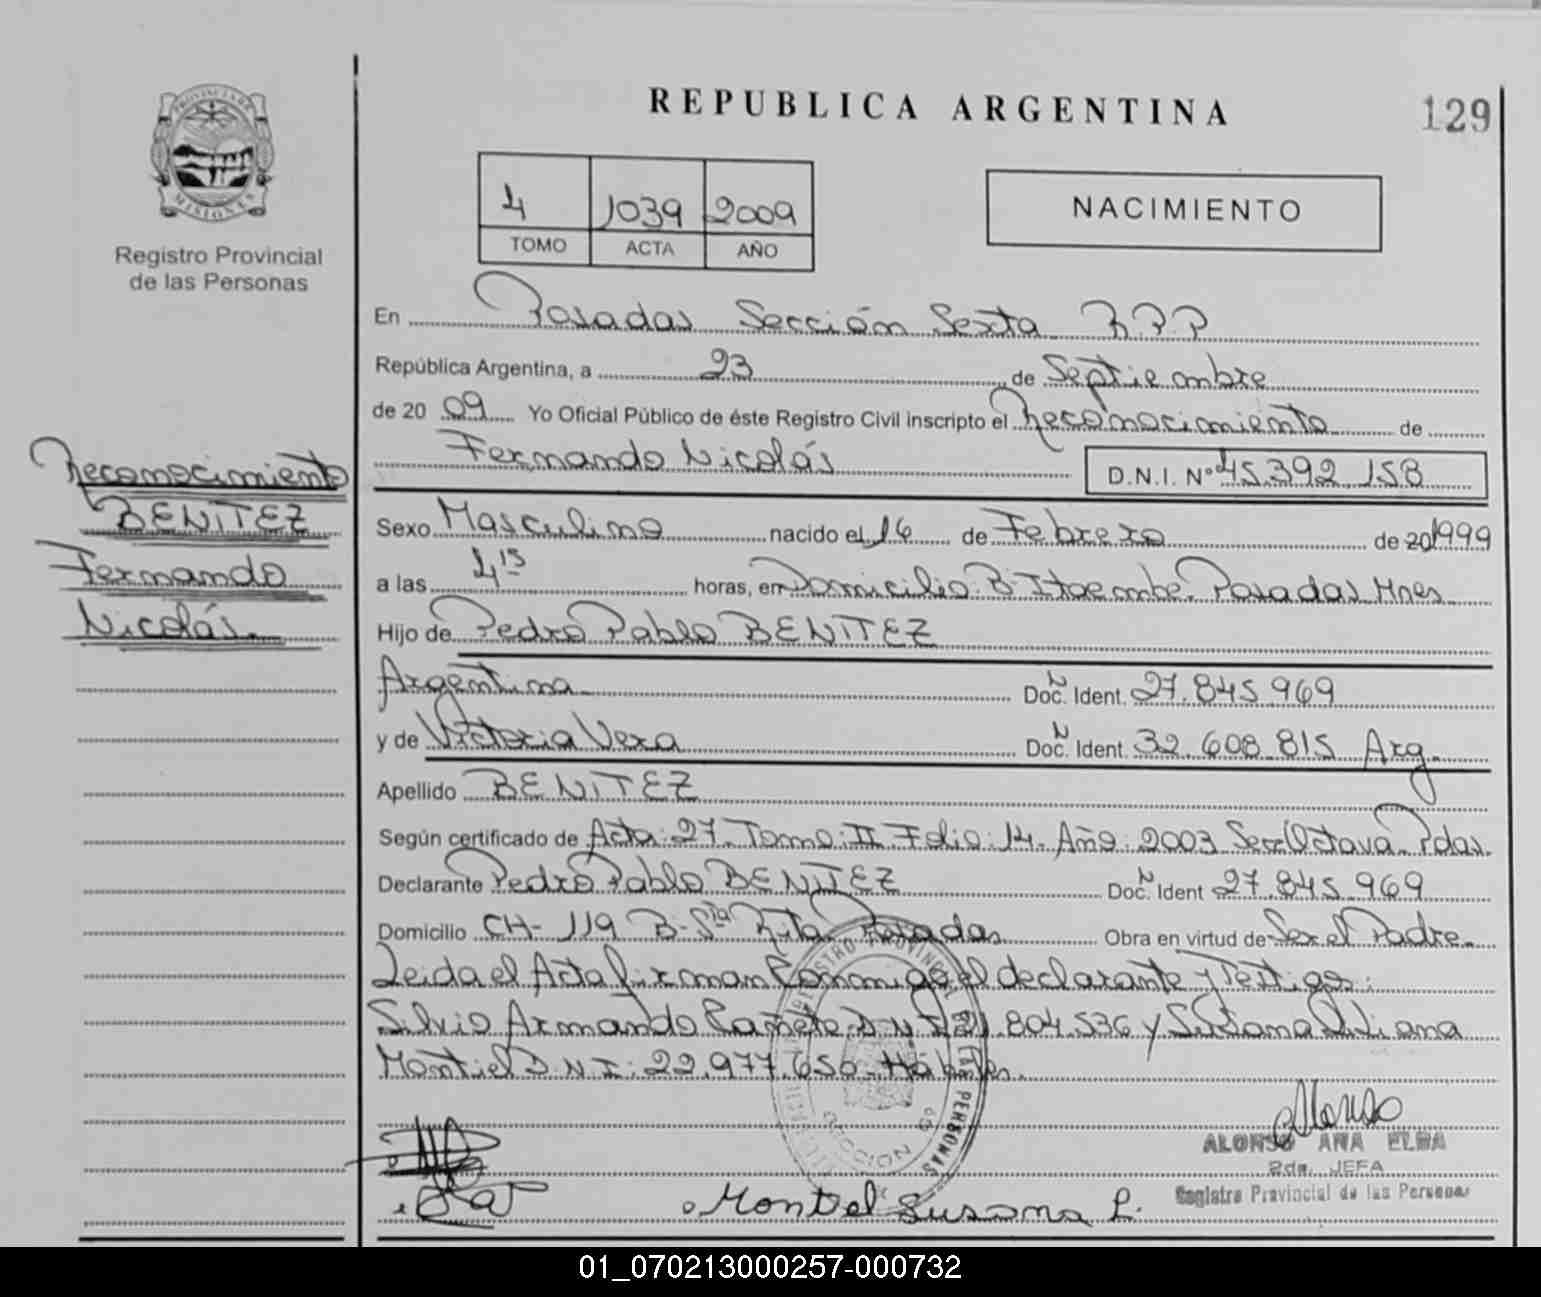 REPUBLICA ARGENTINA
129
PROVINCIA DE
MISIONES
Registro Provincial
de las Personas
4 1039 2009
TOMO ACTA AÑO
NACIMIENTO
En Posadas Sección Sexta R.P.P
República Argentina, a 23 de Septiembre
de 20 09 Yo Oficial Público de éste Registro Civil inscripto el Reconocimiento de
Fernando Nicolás D.N.I. Nº 45.392.158
Reconocimiento
BENITEZ
Fernando
Nicolás.
Sexo Masculino nacido el 16 de Febrero de 20 1999
a las 4 15 horas, en Domicilio. B. Itaembé. Posadas Mnes
Hijo de Pedro Pablo BENITEZ
Argentina Doc. Ident. 27.845.969
y de Victoria Vera Doc. Ident. 32.608.815 Arg.
Apellido BENITEZ
Según certificado de Acta: 27. Tomo: II. Folio: 14. Año: 2003 Secc Octava. Pdas.
Declarante Pedro Pablo BENITEZ Doc. Ident 27.845.969
Domicilio CH- 119 B. Sta Rita Posadas Obra en virtud de Ser el Padre.
Leida el Acta firman Conmigo el declarante y Testigos:
Silvio Armando Cañete D.N.I. 21.804.536 y Susana Liliana
Montiel D.N.I: 22.977.656. Hábiles.
REGISTRO PROVINCIAL DE LAS PERSONAS
SECCION 6º
ALONSO ANA ELBA
2da. JEFA
Registro Provincial de las Personas
Montiel Susana L.
01_070213000257-000732